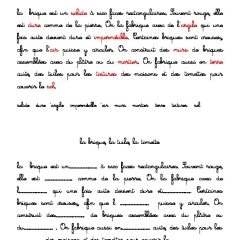 la brique est un solide à six faces rectangulaires. Souvent rouge, elle
est dure comme de la pierre. On la fabrique avec de l'argile qui une
fois cuite devient dure et imperméable. Certaines briques sont creuses,
afin que l'air puisse y circuler. On construit des murs de briques
assemblées avec du plâtre ou du mortier. On fabrique aussi en terre
cuite, des tuiles pour les toitures des maisons et des tomettes pour
couvrir le sol.
solide dure argile imperméable air murs mortier terre toitures sol
la brique, la tuile, la tomette
la brique est un____________ à six faces rectangulaires. Souvent rouge,
elle est ____________ comme de la pierre. On la fabrique avec de
l'____________ qui une fois cuite devient dure et____________. Certaines
briques sont creuses, afin que l' ____________ puisse y circuler. On
construit des____________ de briques assemblées avec du plâtre ou
du____________. On fabrique aussi en ____________ cuite, des tuiles pour les
des maisons et des tomettes pour couvrir le